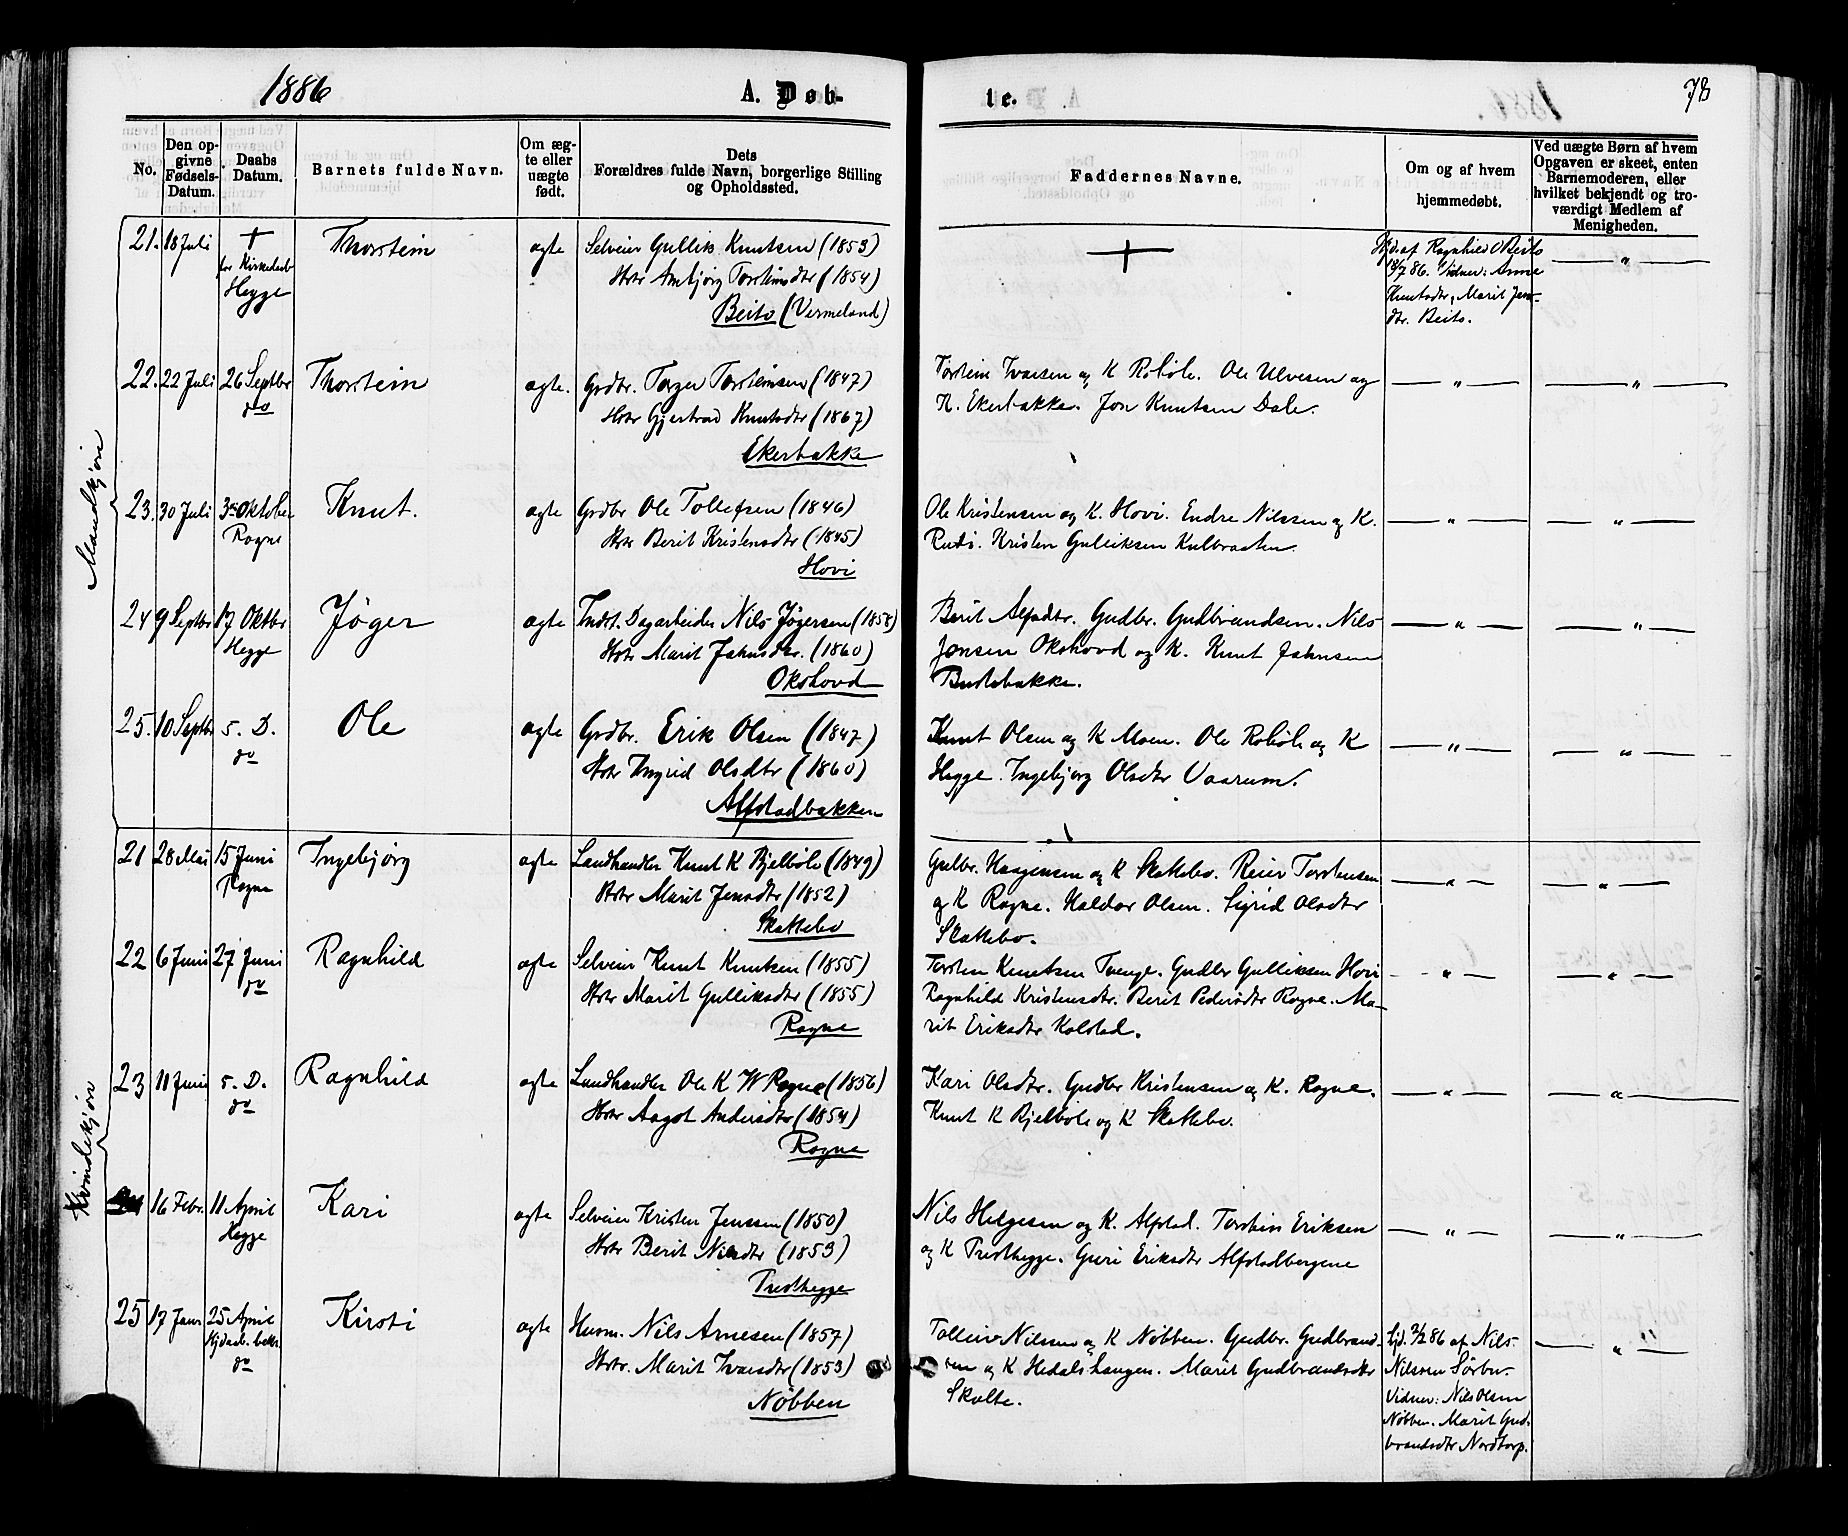 1886
A. Døb-
te.
78
No.
Den op-
givne
Fødsels-
Datum.
Daabs
Datum.
Barnets fulde Navn.
Om æg-
te eller
uægte
født.
Dets
Forældres fulde Navn, borgerlige Stilling
og Opholdssted.
Faddernes Navne.
Om og af hvem
hjemmedøbt.
Ved uægte Børn af hvem
Opgaven er skeet, enten
Barnemoderen, eller
hvilket bekjendt og tro-
værdigt Medlem af
Menigheden.
Mandkjøn
21. 18 Juli † Thorstein ægte Selveier Gullik Knutsen (1853)
Hegge
Hstr Ambjørg Torsteinsdtr (1854)
Beito (Vermeland)
†
Hjd. af Ragnhild O Beito
18/7 86. Vidner: Anne
Knutsdtr, Marit Jens-
dtr. Beito.
22. 22 Juli 26 Septbr Thorstein ægte. Grdbr. Torger Torsteinsen (1847)
do
Hstr Gjertrud Knutsdtr (1867)
Ekerbakke
Torstein Ivarsen og K Robøle. Ole Ulvesen og
K. Ekerbakke. Jon Knutsen Dale.
23. 30 Juli 3 Oktober Knut. ægte Grdbr Ole Tollefsen (1846)
Rogne
Hstr Berit Kristensdtr (1845)
Hovi
Ole Kristensen og K. Hovi. Endre Nilssen og K.
Rudi. Kristen Gulliksen Kulbraaten.
24 9 Septbr 17 Oktbr Jøger ægte Indst. Dagarbeider Nils Jøgersen (1858)
Hegge
Hstr Marit Jahnsdtr. (1860)
Okshovd
Berit Alfsdtr. Gudbr. Gudbrandsen. Nils
Jensen Okshovd og K. Knut Jahnsen
25. 10 Septbr s. D. Ole ægte Grdbr. Erik Olsen (1847)
do
Hstr Ingrid Olsdtr (1860)
Alfstadbakken
Knut Olsen og K Moen. Ole Robøle og K
Hegge. Ingebjørg Olsdtr Vaarum.
Kvindekjøn
21 28 Mai 15 Juni Ingebjørg ægte Landhandler Knut K Bjelbøle (1849)
Rogne
Hstr Marit Jensdtr (1852)
Skattebo
Gulbr. Haagensen og K Skattebo. Reier Torstensen
og K Rogne. Haldor Olsen. Sigrid Olsdtr
Skattebo.
22 6 Juni 27 Juni Ragnhild ægte Selveier Knut Knutsen (1855)
do
Hstr Marit Gulliksdtr (1855)
Rogne
Torsten Knutsen Tvenge. Gudbr Gulliksen Hovi
Ragnhild Kristensdtr. Berit Pedersdtr Rogne. Ma-
rit Eriksdtr Kolstad.
23 11 Juni s. D. Ragnhild ægte Landhandler Ole K W Rogne (1856)
do
Hstr Aagot Andersdtr (1854)
Rogne
Kari Olsdtr. Gudbr Kristensen og K. Rogne.
Knut K Bjelbøle og K Skattebo.
16 Febr. 11 April Kari ægte Selveier Kristen Jenssen (1850)
Hegge
Hstr Berit Nilsdtr (1853)
Presthegge
Nils Helgesen og K. Alfstad. Torstein Eriksen
og K Presthegge. Guri Eriksdtr Alfstadbergene
25 17 Janr 25 April Kirsti ægte Husm. Nils Arnesen (1857)
Hjdaab. bekr.
do
Hstr. Marit Ivarsdtr (1853)
Nøbben
Nilsen og K Nøbben. Gudbr. Gudbrand-
sen og K Hedalshaugen. Marit Gudbrandsdtr
Skolte.
Hjd. 2/2 86 af Nils
Nilssen Sørbu.
Vidner: Nils Olsen
Nøbben. Marit Gud-
brandsdtr Nordtorp.